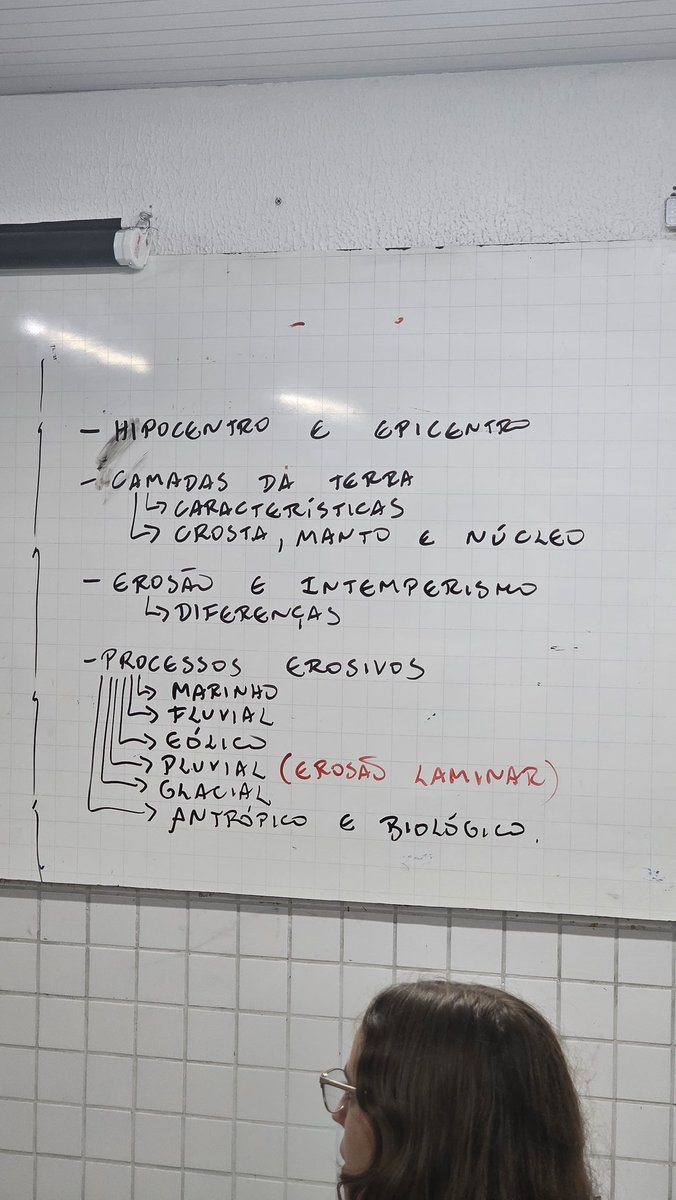 - HIPOCENTRO E EPICENTRO
- CAMADAS DA TERRA
↳ CARACTERÍSTICAS
↳ CROSTA, MANTO E NÚCLEO
- EROSÃO E INTEMPERISMO
↳ DIFERENÇAS
- PROCESSOS EROSIVOS
↳ MARINHO
↳ FLUVIAL
↳ EÓLICO
↳ PLUVIAL (EROSÃO LAMINAR)
↳ GLACIAL
↳ ANTRÓPICO E BIOLÓGICO.